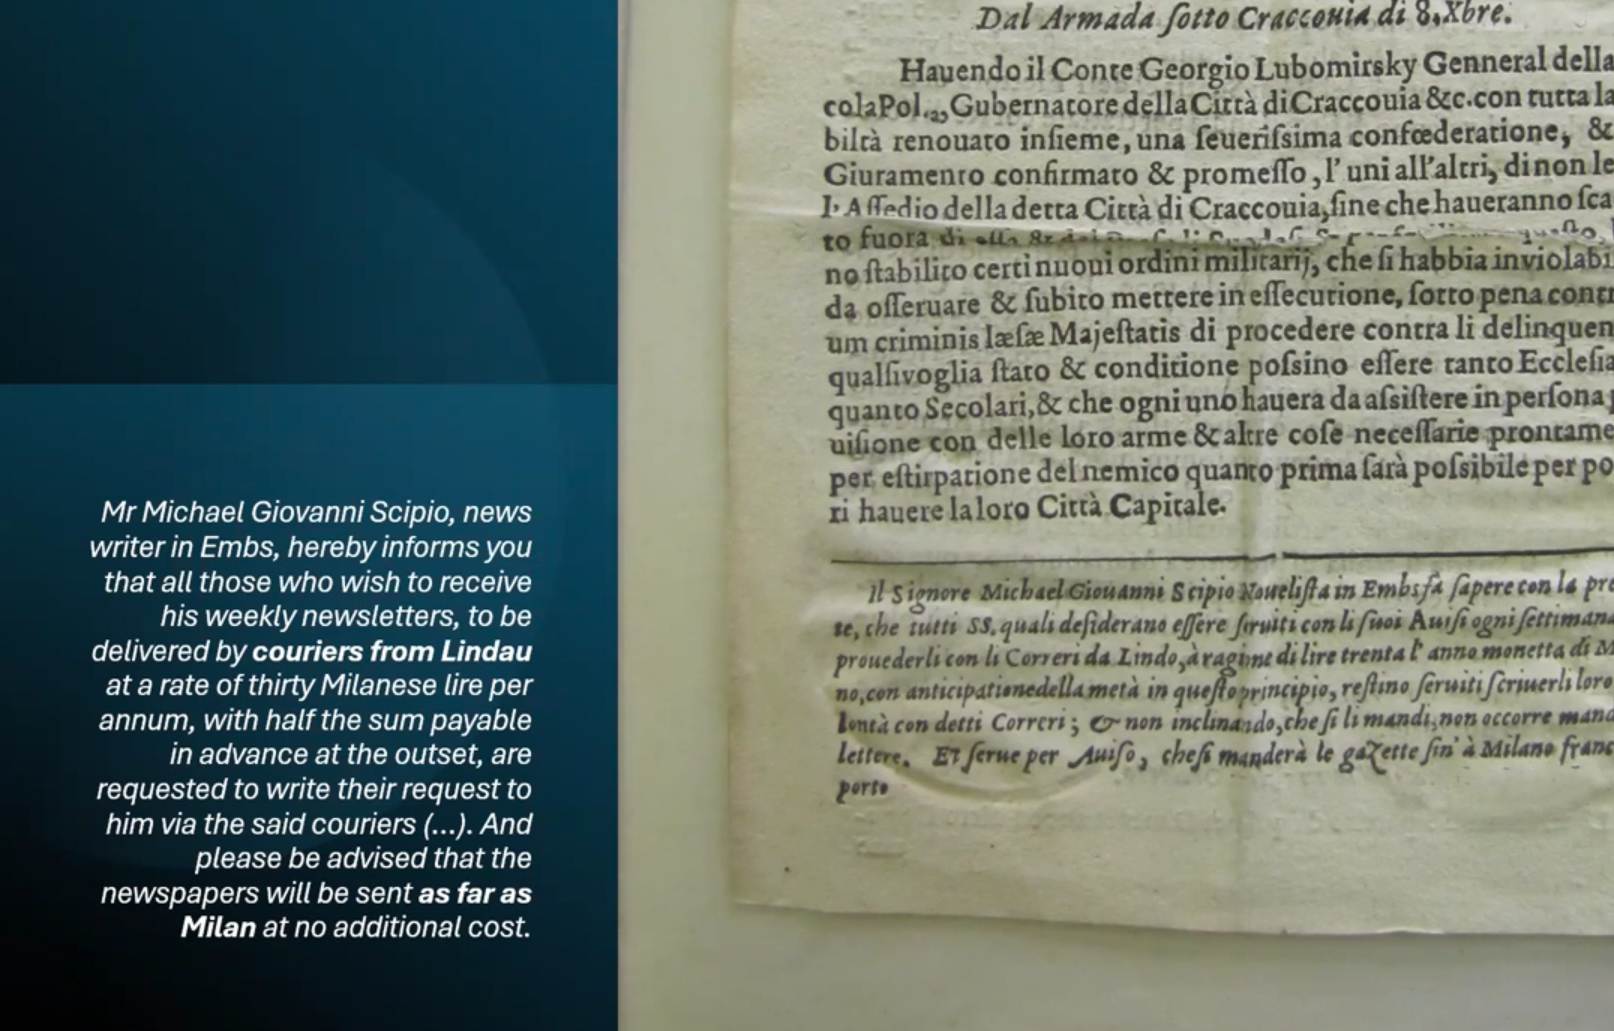 Mr Michael Giovanni Scipio, news
writer in Embs, hereby informs you
that all those who wish to receive
his weekly newsletters, to be
delivered by couriers from Lindau
at a rate of thirty Milanese lire per
annum, with half the sum payable
in advance at the outset, are
requested to write their request to
him via the said couriers (...). And
please be advised that the
newspapers will be sent as far as
Milan at no additional cost.
Dal Armada ſotto Cracconia di 8,Xbre.
Hauendo il Conte Georgio Lubomirsky Genneral della
cola Pol. Gubernatore della Città di Craccouia &c. con tutta la
biltà renouato inſieme, una ſeueriſsima confœderatione, &
Giuramento confirmato & promeſſo, l' uni all'altri, di non le
l'Aſſedio della detta Città di Craccouia, fine che haueranno ſca
to fuora di
no ſtabilito certi nuoui ordini militarij, che ſi habbia inviolabi
da oſſeruare & ſubito mettere in eſſecutione, ſotto pena contr
um criminis læſæ Majeſtatis di procedere contra li delinquen
qualſivoglia ſtato & conditione poſsino eſſere tanto Eccleſia
quanto Secolari, & che ogni uno hauera da aſsiſtere in perſona
uiſione con delle loro arme & altre coſe neceſſarie prontame
per eſtirpatione del nemico quanto prima ſarà poſsibile per po
ri hauere la loro Città Capitale.
Il Signore Michael Giouanni Scipio Nouelliſta in Embs fà ſapere con la pre
te, che tutti SS. quali deſiderano eſſere ſeruiti con li ſuoi Auiſi ogni ſettimana
prouederli con li Correri da Lindo, à ragione di lire trenta l' anno monetta di M
no, con anticipatione della metà in queſto principio, reſtino ſeruiti ſcriuerli loro
lontà con detti Correri ; & non inclinando, che ſi li mandi, non occorre mand
lettere. Et ſerue per Auiſo, che ſi manderà le gazette ſin' à Milano franc
porto